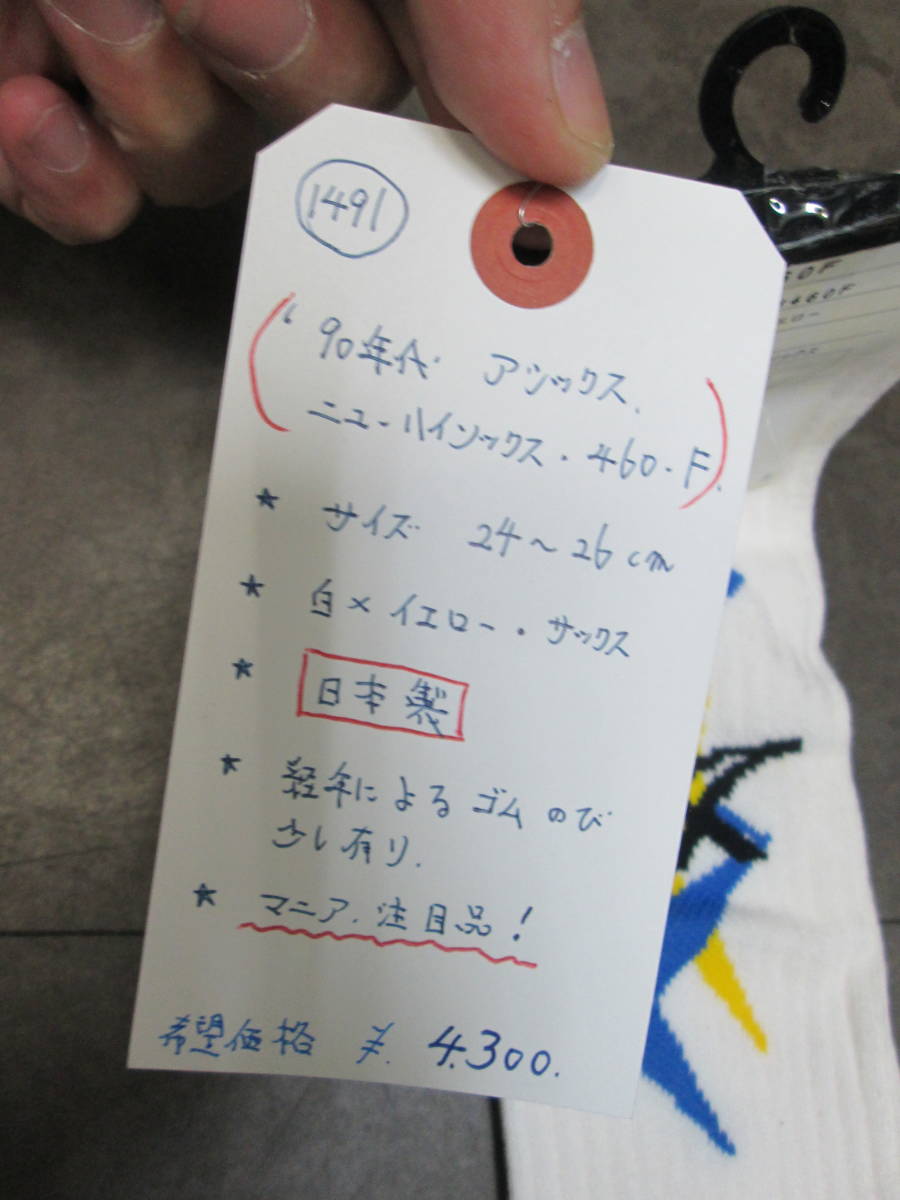 1491
'90年代 アシックス.
ニュー・ハイソックス・460・F.
★ サイズ 24～26cm
★ 白×イエロー・サックス
★ 日本製
★ 経年によるゴムのび
少し有り.
★ マニア.注目品!
希望価格 ¥.4.300.
60F
460F
ロー